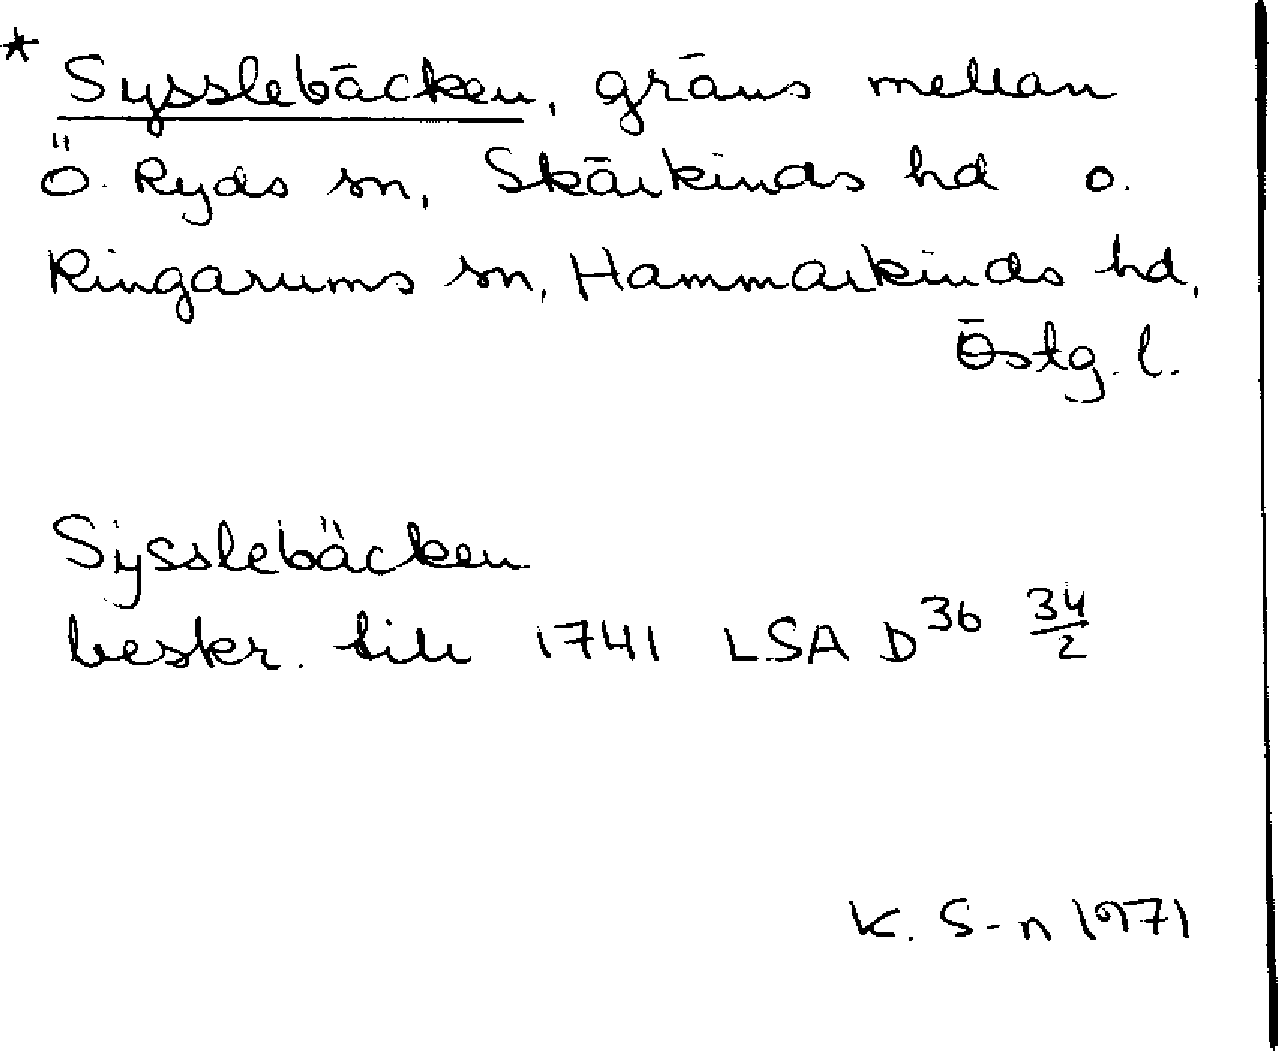 * Sysslebäcken, gräns mellan
Ö. Ryds sn, Skärkinds hd o.
Ringarums sn, Hammarkinds hd,
Östg. l.
Sysslebäcken
beskr. till 1741 LSA D³⁶ 34/2
K. S-n 1971